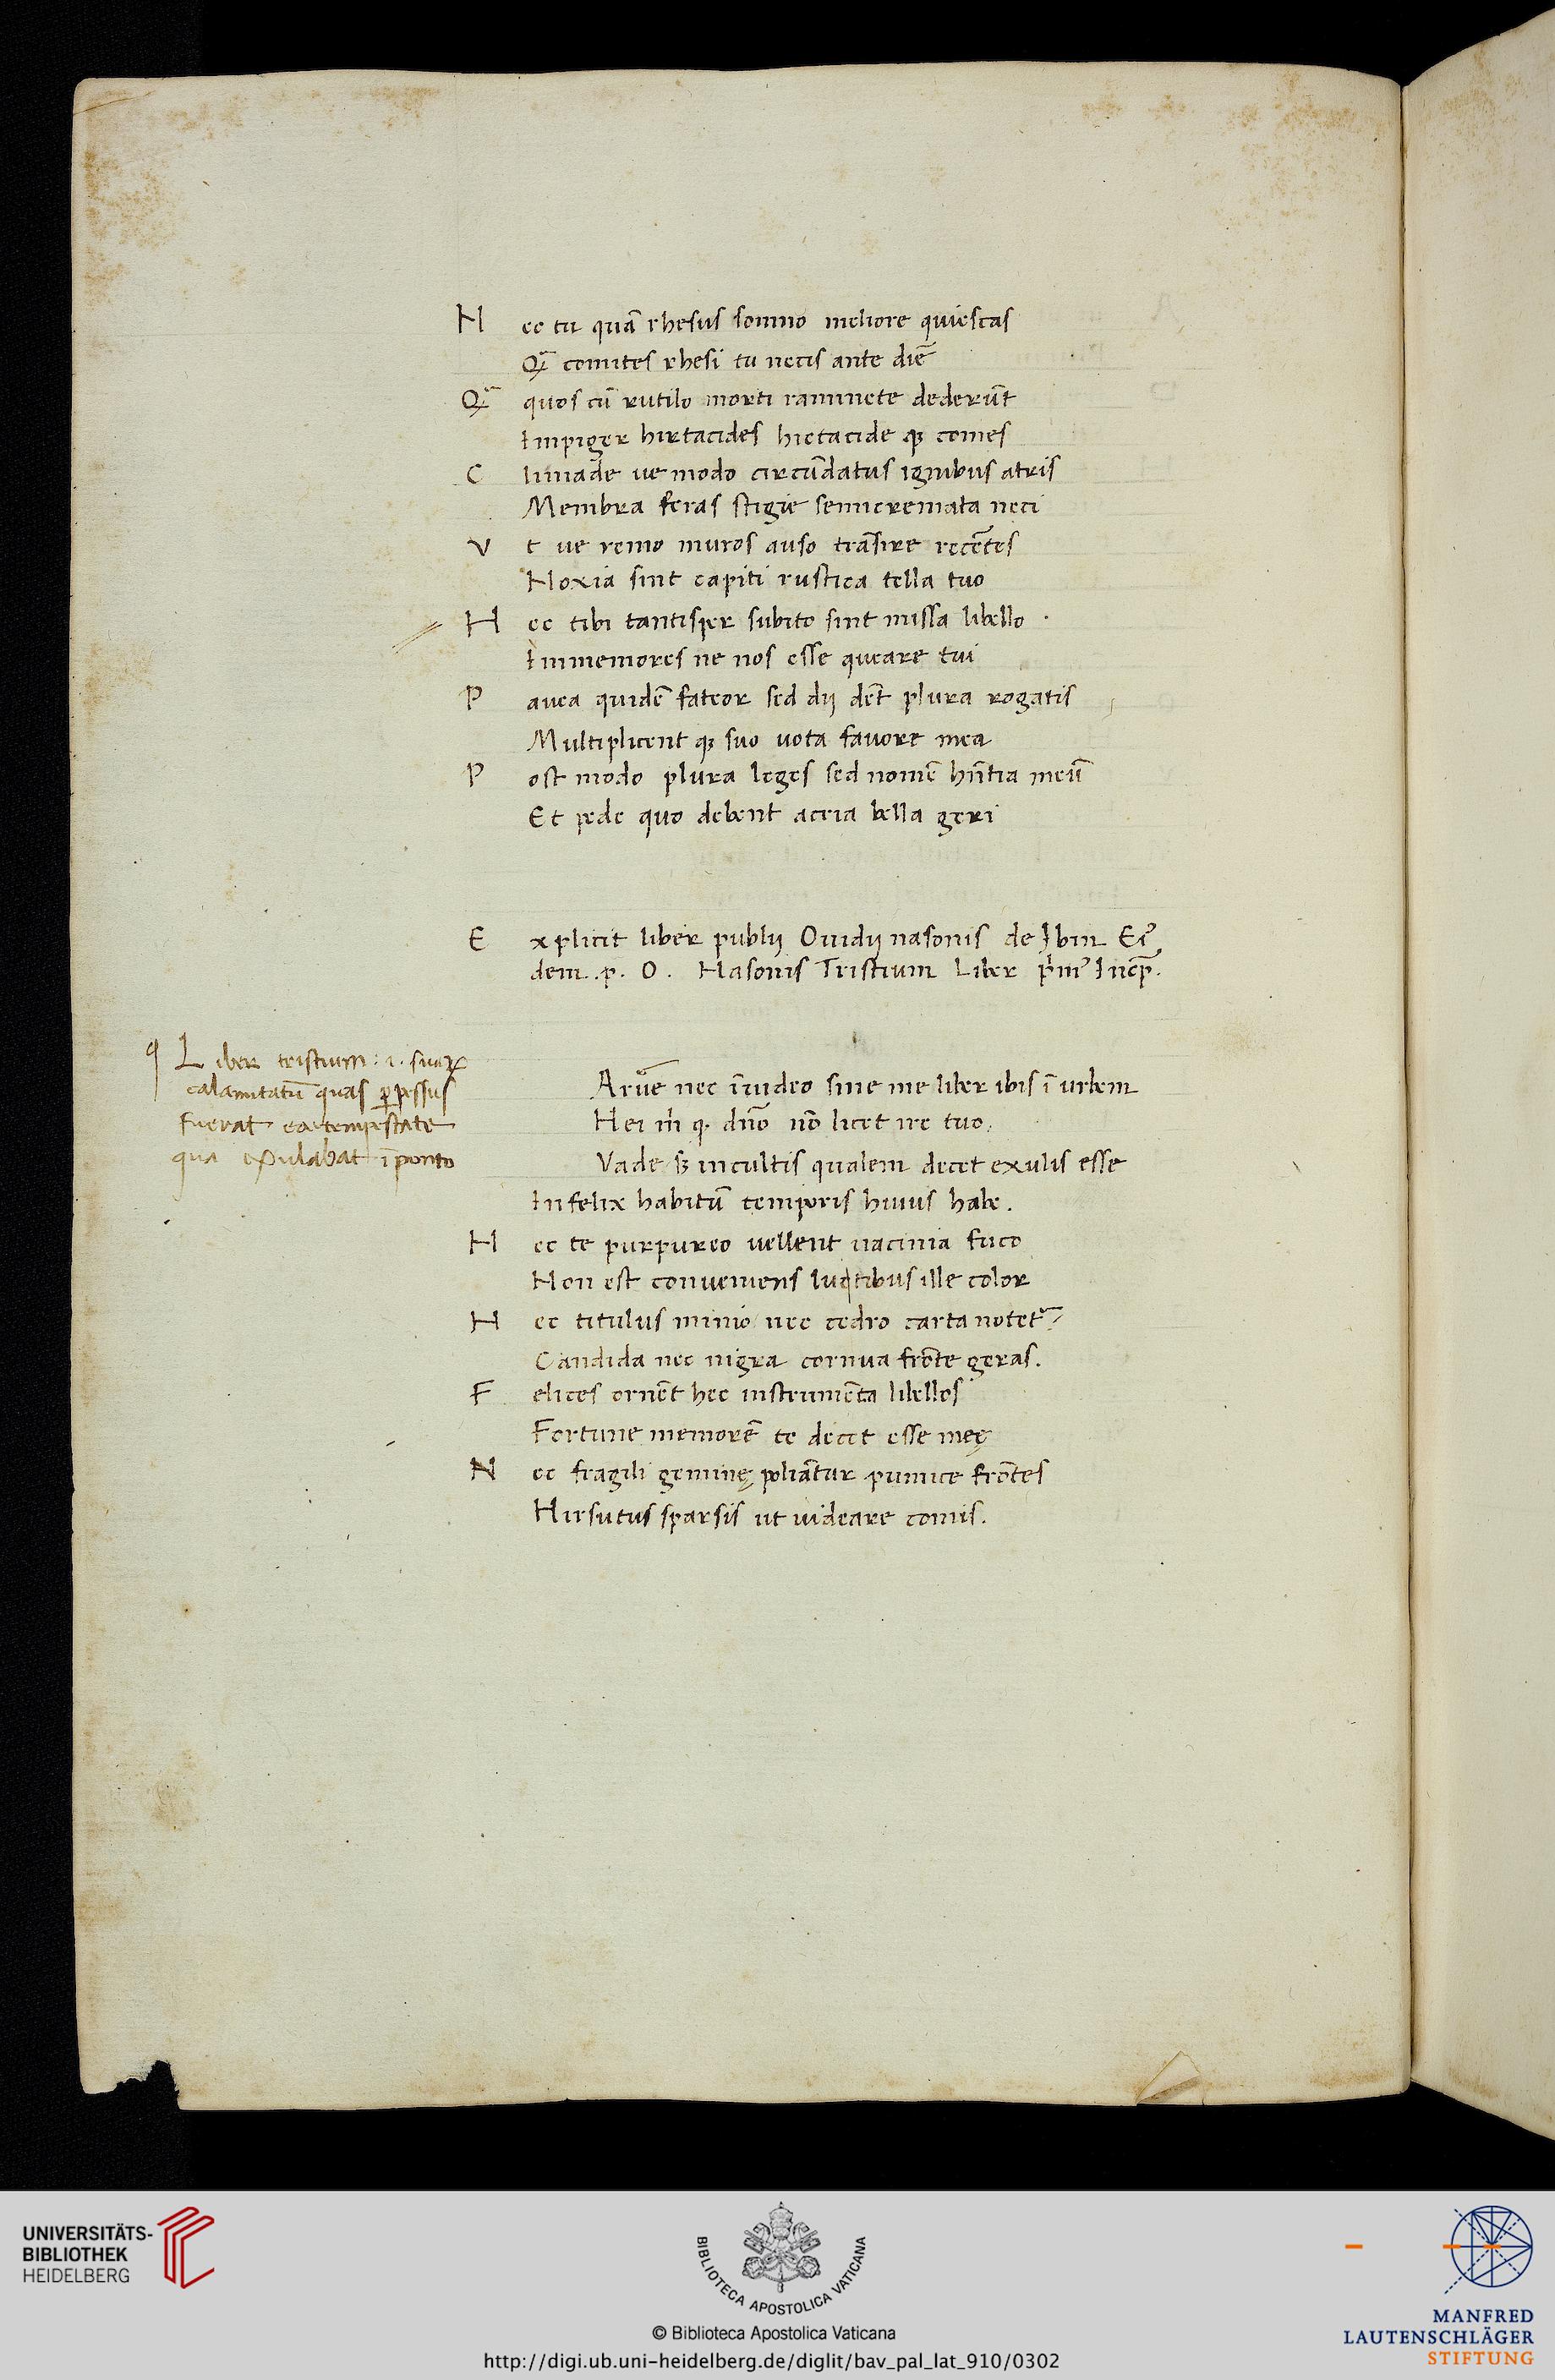 N ec tu quā rhesus somno meliore quiescas
Qā comites rhesi tu necis ante diē
Qā quos cū rutilo morti ramnete dederūt
Impiger hirtacides hictacide q3 comes
C liniade ue modo circūdatus ignibus atris
Membra feras stigie semicremata neci
V t ue remo muros auso trāsire recētes
Noxia sint capiti rustica tella tuo
H ec tibi tantisper subito sint missa libello .
Immemores ne nos esse queare tui
P auca quidē fateor sed dij dēt plura rogatis
Multiplicent q3 suo uota fauore mea
P ost modo plura leges sed nomē hñtia meū
Et pede quo debent acria bella geri
E xplicit liber publij Ouidij nasonis de Ibin Ei9
dem .p. O. Nasonis Tristium Liber p̄m9 Incp̄.
¶ Liber tristium .i. suaꝝ
calamitatū quas ꝑpessus
fuerat ea tempestate
qua exulabat ī ponto
Aruē nec īuideo sine me liber ibis ī urbem
Hei m̄ q. dño nō licet ire tuo.
Vade s3 incultis qualem decet exulis esse
Infelix habitū temporis huius habe.
N ec te purpureo uellent uacinia fuco
Non est conueniens luctibus ille color
N ec titulus minio nec cedro carta notet~
Candida nec nigra cornua frōte geras.
F elices ornēt hec instrumēta libellos
Fortune memorē te decet esse meę
N ec fragili geminę poliātur pumice frōtes
Hirsutus sparsis ut uideare comis.
UNIVERSITÄTS-
BIBLIOTHEK
HEIDELBERG
BIBLIOTECA APOSTOLICA VATICANA
© Biblioteca Apostolica Vaticana
http://digi.ub.uni-heidelberg.de/diglit/bav_pal_lat_910/0302
MANFRED
LAUTENSCHLÄGER
STIFTUNG